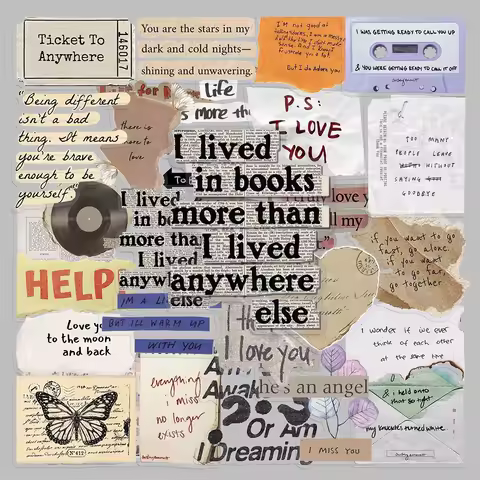 Ticket To
Anywhere
146017
You are the stars in my
dark and cold nights—
shining and unwavering.
I'm not good at
But I do adore you
I WAS GETTING READY TO CALL YOU UP
& YOU WERE GETTING READY TO CALL IT OFF
"Being different
isn't a bad
thing. It means
you're brave
enough to be
yourself."
for
Life
is more tha
there is
more to
love
P.S:
I LOVE
YOU
TOO MANY
PEOPLE LEAVE
WITHOUT
SAYING
GOODBYE
I lived
To
in books
more than
I lived
anywhere
else
I lived
in bo
more tha
I lived
anywh
else
truly love y
ll my
if you want to go
fast, go alone.
if you want
to go far,
go together
HELP
I'M A LI
BUT I'LL WARM UP
WITH YOU
Love yo
to the moon
and back
I th
I love you
I wonder if we ever
think of each other
at the same time
everything
i miss
no longer
exists
Am
Awak
he's an angel
?
Or Am
I Dreaming
& i held onto
that so tight
my knuckles turned white
I MISS YOU
Nº412